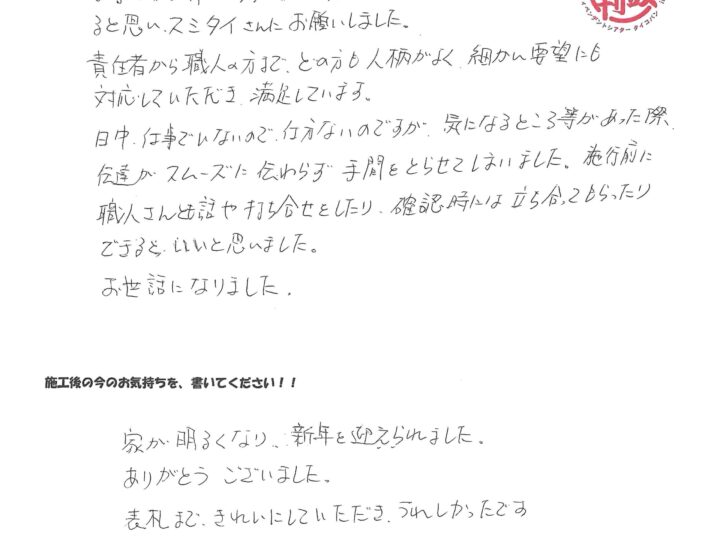 ると思い、スミタイさんにお願いしました。
責任者から職人の方まで、どの方も人柄がよく、細かい要望にも
対応していただき、満足しています。
日中、仕事でいないので、仕方ないのですが、気になるところ等があった際、
伝達がスムーズに伝わらず手間をとらせてしまいました。施行前に
職人さんと話や打ち合せをしたり、確認時には立ち合ってもらったり
できると、いいと思いました。
お世話になりました。
施工後の今のお気持ちを、書いてください!!
家が明るくなり、新年を迎えられました。
ありがとうございました。
表札まで、きれいにしていただき、うれしかったです